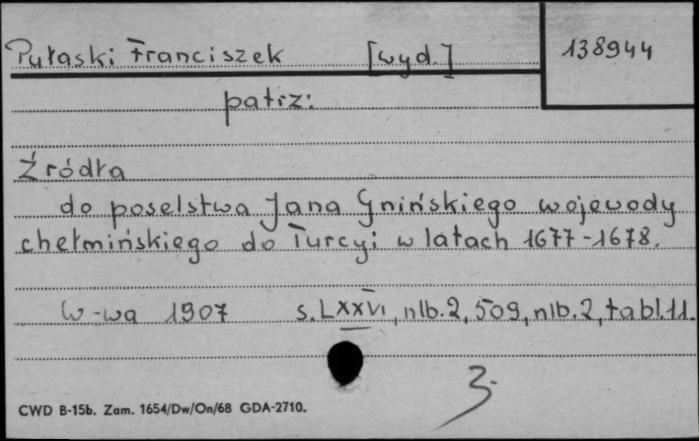 Pułaski Franciszek [wyd.] 138944
patrz:
Źródła
do poselstwa Jana Gnińskiego wojewody
chełmińskiego do Turcyi w latach 1677-1678.
W-wa 1907 s. LXXVI, nlb. 2, 509, nlb. 2, tabl. 11.
3.
CWD B-15b. Zam. 1654/Dw/On/68 GDA-2710.